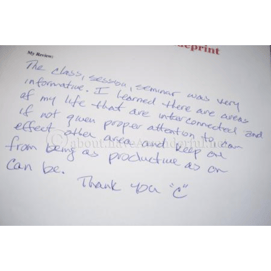 eprint
My Review:
The class, session, seminar was very
informative. I learned there are areas
of my life that are interconnected and
if not given proper attention to can
effect other area and keep one
from being as productive as on
can be.
Thank you "C"